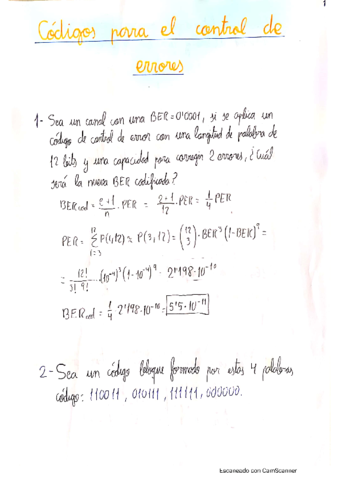 1
Códigos para el control de
errores
1- Sea un canal con una BER=0'0001, si se aplica un
código de control de error con una longitud de palabra de
12 bits y una capacidad para corregir 2 errores, ¿Cuál
será la nueva BER codificada?
BERcod = 2+1/n · PER = 2+1/12 · PER = 1/4 PER
PER = 12 Σ i=3 P(i,12) ≈ P(3,12) = (12 3) · BER³ (1-BER)⁹ =
= 12!/3! 9! · (10⁻⁴)³ (1-10⁻⁴)⁹ = 2'198·10⁻¹⁰
BERcod = 1/4 · 2'198·10⁻¹⁰ = 5'5·10⁻¹¹
2- Sea un código bloque formado por estas 4 palabras
código: 110011, 010111, 111111, 000000.
Escaneado con CamScanner